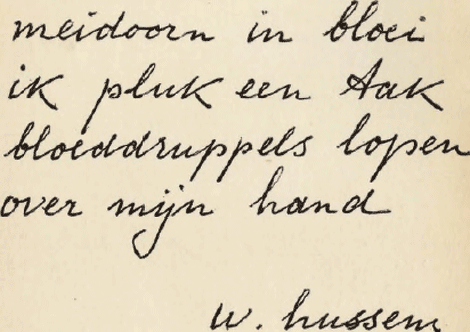 meidoorn in bloei
ik pluk een tak
bloeddruppels lopen
over mijn hand
w. hussem